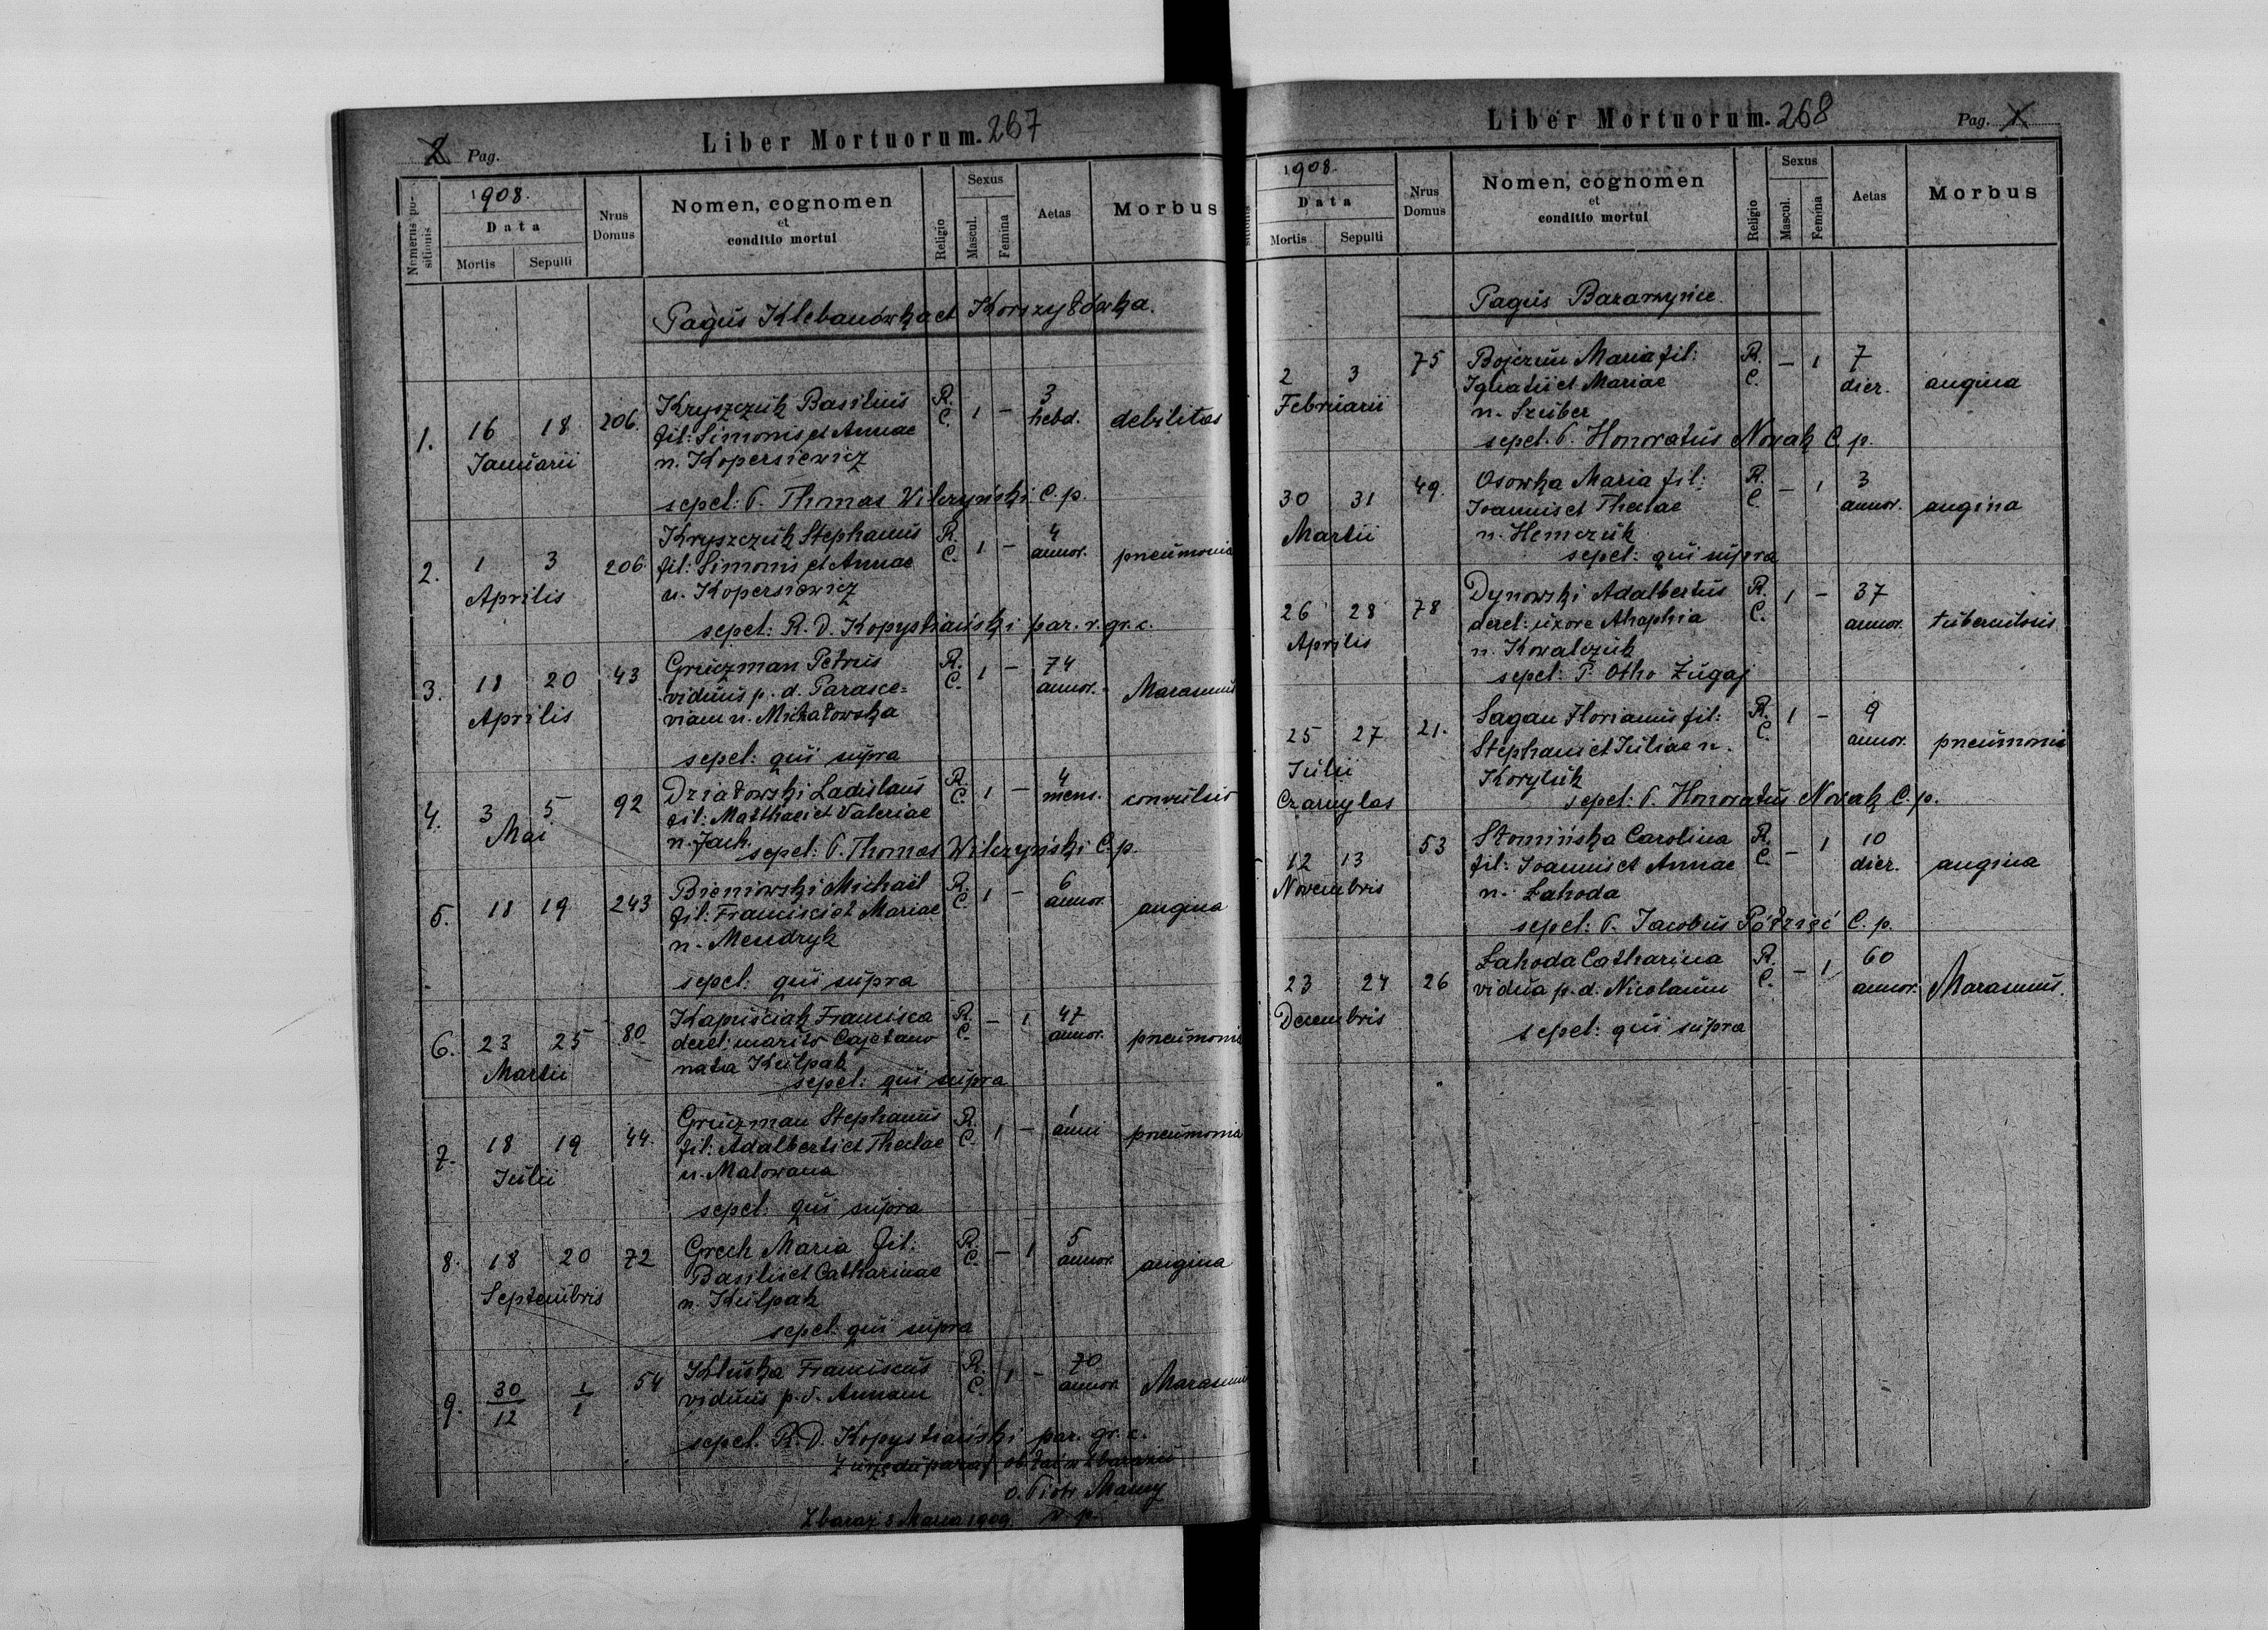 2 Pag.
Liber Mortuorum. 267
Numerus positionis
1908.
Data
Mortis Sepulti
Nrus Domus
Nomen, cognomen
et
conditio mortui
Religio
Sexus
Mascul. Femina
Aetas
Morbus
Pagus Klebanówka et Korszyłówka.
1. 16 18 206. Kryszczuk Basilius R. C. 1 – 3 hebd. debilitas
Januarii fil: Simonis et Annae
n. Kopersiewicz
sepel: P. Thomas Wilczyński C. p.
2. 1 3 206. Kryszczuk Stephanus R. C. 1 – 4 annor. pneumonia
Aprilis fil: Simonis et Annae
n. Kopersiewicz
sepel: R. D. Kopystiański par. r. gr. c.
3. 18 20 43 Gruczman Petrus R. C. 1 – 74 annor. Marasmus
Aprilis viduus p. d. Parasce=
viam n. Michałowska
sepel: qui supra
4. 3 5 92 Działowski Ladislaus R. C. 1 – 4 mens. convulsio
Mai fil: Matthaei et Valeriae
n. Jach.
sepel: P. Thomas Wilczyński C. p.
5. 18 19 243 Bieniowski Michaël R. C. 1 – 6 annor. angina
fil: Francisci et Mariae
n. Mendryk
sepel: qui supra
6. 23 25 80 Kapuściak Francisca R. C. – 1 47 annor. pneumonia
Martii derel: marito Cajetano
nata Kulpak
sepel: qui supra
7. 18 19 44. Gruczman Stephanus R. C. 1 – 1 anni pneumonia
Julii fil: Adalberti et Theclae
n. Malowana
sepel: qui supra
8. 18 20 72 Grech Maria fil: R. C. – 1 5 annor. angina
Septembris Basilii et Catharinae
n. Kulpak
sepel: qui supra
9. 30/12 1/1 54 Kluska Franciscus R. C. 1 – 70 annor. Marasmus
viduus p. d. Annam
sepel. R. D. Kopystiański par. gr. c.
Z urzędu paraf. ob. łac. w Zbarażu
o. Piotr
Zbaraż 8 Marca 1909.
Liber Mortuorum. 268
Pag. 1.
sitionis
1908.
Data
Mortis Sepulti
Nrus Domus
Nomen, cognomen
et
conditio mortui
Religio
Sexus
Mascul. Femina
Aetas
Morbus
Pagus Bazarzyńce
2 3 75 Bojczun Maria fil: R. C. – 1 7 dier. angina
Februarii Ignatii et Mariae
n. Szuber
sepel. P. Honoratus Nowak C. p.
30 31 49. Osowka Maria fil: R. C. – 1 3 annor. angina
Martii Joannis et Theclae
n. Hemczuk
sepel: qui supra
26 28 78 Dynowski Adalbertus R. C. 1 – 37 annor. tuberculosis
Aprilis derel: uxore Ahaphia
n. Kowalczuk
sepel: P. Otho Zugaj
25 27 21. Sagan Florianus fil: R. C. 1 – 9 annor. pneumonia
Julii Stephani et Juliae n.
Czarnylas Koryluk
sepel: P. Honoratus Nowak C. p.
12 13 53 Słomińska Carolina R. C. – 1 10 dier. angina
Novembris fil: Joannis et Annae
n. Łahoda
sepel: P. Jacobus Półrzięć C. p.
23 24 26 Łahoda Catharina R. C. – 1 60 annor. Marasmus.
Decembris vidua p. d. Nicolaum
sepel: qui supra